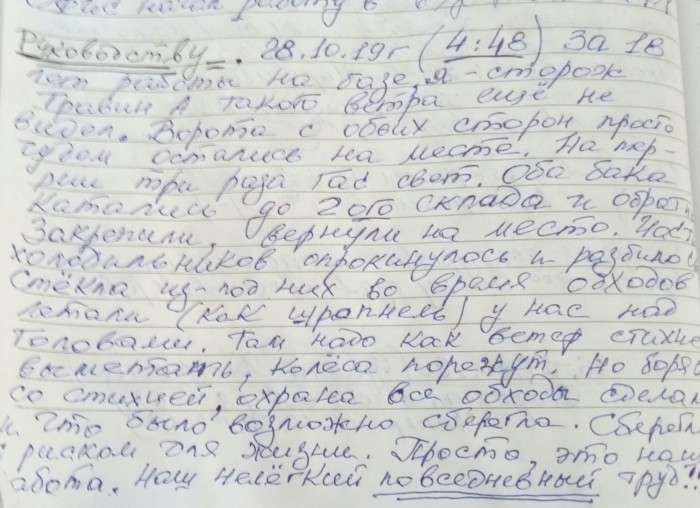 Руководству =. 28.10.19г (4:48) За 18
лет работы на базе, я - сторож
Травин А такого ветра ещё не
видел. Ворота с обеих сторон просто
чудом остались на месте. На пер-
рии три раза Гас свет. Оба бака
катались до 2ого склада и обратн
Закрепили, вернули на место. Част
холодильников опрокинулось и разбило
Стёкла из-под них во время обходов
летали (как шрапнель) у нас над
головами. Там надо как ветер стихне
выметать, колёса порежут. Но борясь
со стихией, охрана все обходы сделал
и что было возможно сберегла. Сберегл
с риском для жизни. Просто, это наш
абота. Наш нелёгкий повседневный труд!!